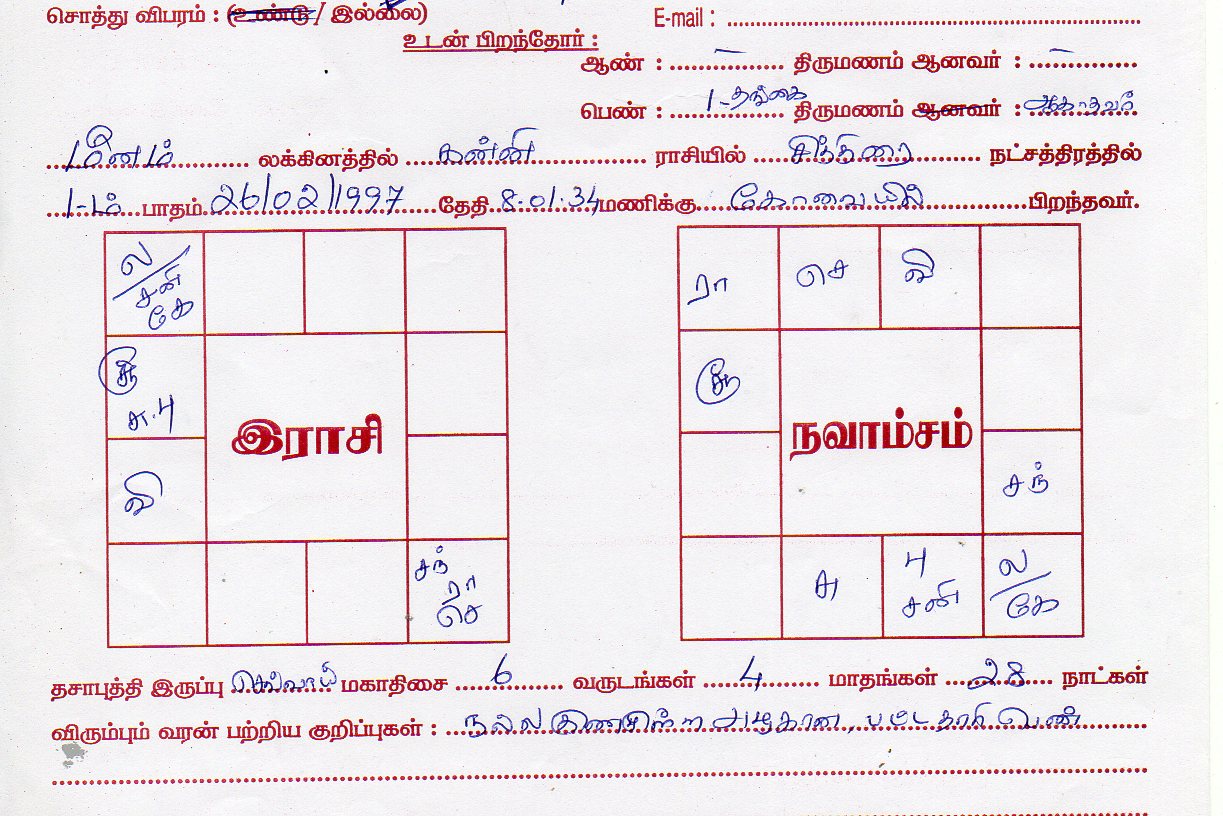 சொத்து விபரம் : (உண்டு / இல்லை)
E-mail :
உடன் பிறந்தோர் :
ஆண் : – திருமணம் ஆனவர் : –
பெண் : 1-தங்கை திருமணம் ஆனவர் : ஆகாதவர்
மீனம் லக்கினத்தில் கன்னி ராசியில் சித்திரை நட்சத்திரத்தில்
1-ம் பாதம் 26/02/1997 தேதி 8.01.34 மணிக்கு கோவையில் பிறந்தவர்.
ல/
சனி
கே
சூ
சு. பு
வி
சந்
ரா
செ
இராசி
ரா செ வி
சூ
சந்
சு பு
சனி
ல/
கே
நவாம்சம்
தசாபுத்தி இருப்பு செவ்வாய் மகாதிசை 6 வருடங்கள் 4 மாதங்கள் 28 நாட்கள்
விரும்பும் வரன் பற்றிய குறிப்புகள் : நல்ல அழகான, பட்டதாரி பெண்